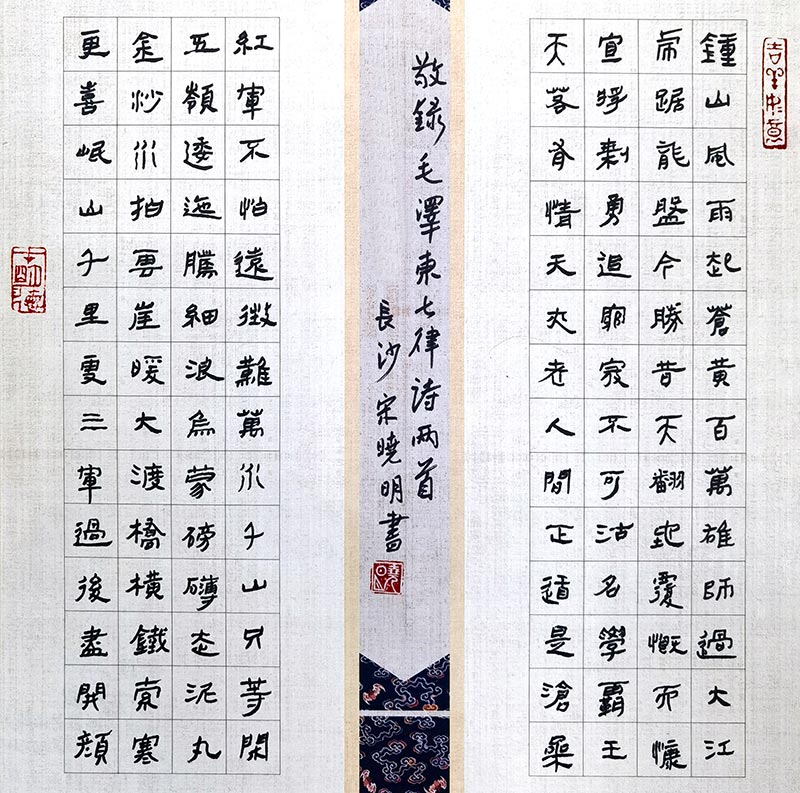 鍾山風雨起蒼黃百萬雄師過大江
虎踞龍盤今勝昔天翻地覆慨而慷
宜將剩勇追窮寇不可沽名學霸王
天若有情天亦老人間正道是滄桑
敬録毛澤東七律诗两首
長沙宋曉明書
紅軍不怕遠徵難萬水千山只等閑
五嶺逶迤騰細浪烏蒙磅礴走泥丸
金沙水拍雲崖暖大渡橋橫鐵索寒
更喜岷山千里雪三軍過後盡開顏